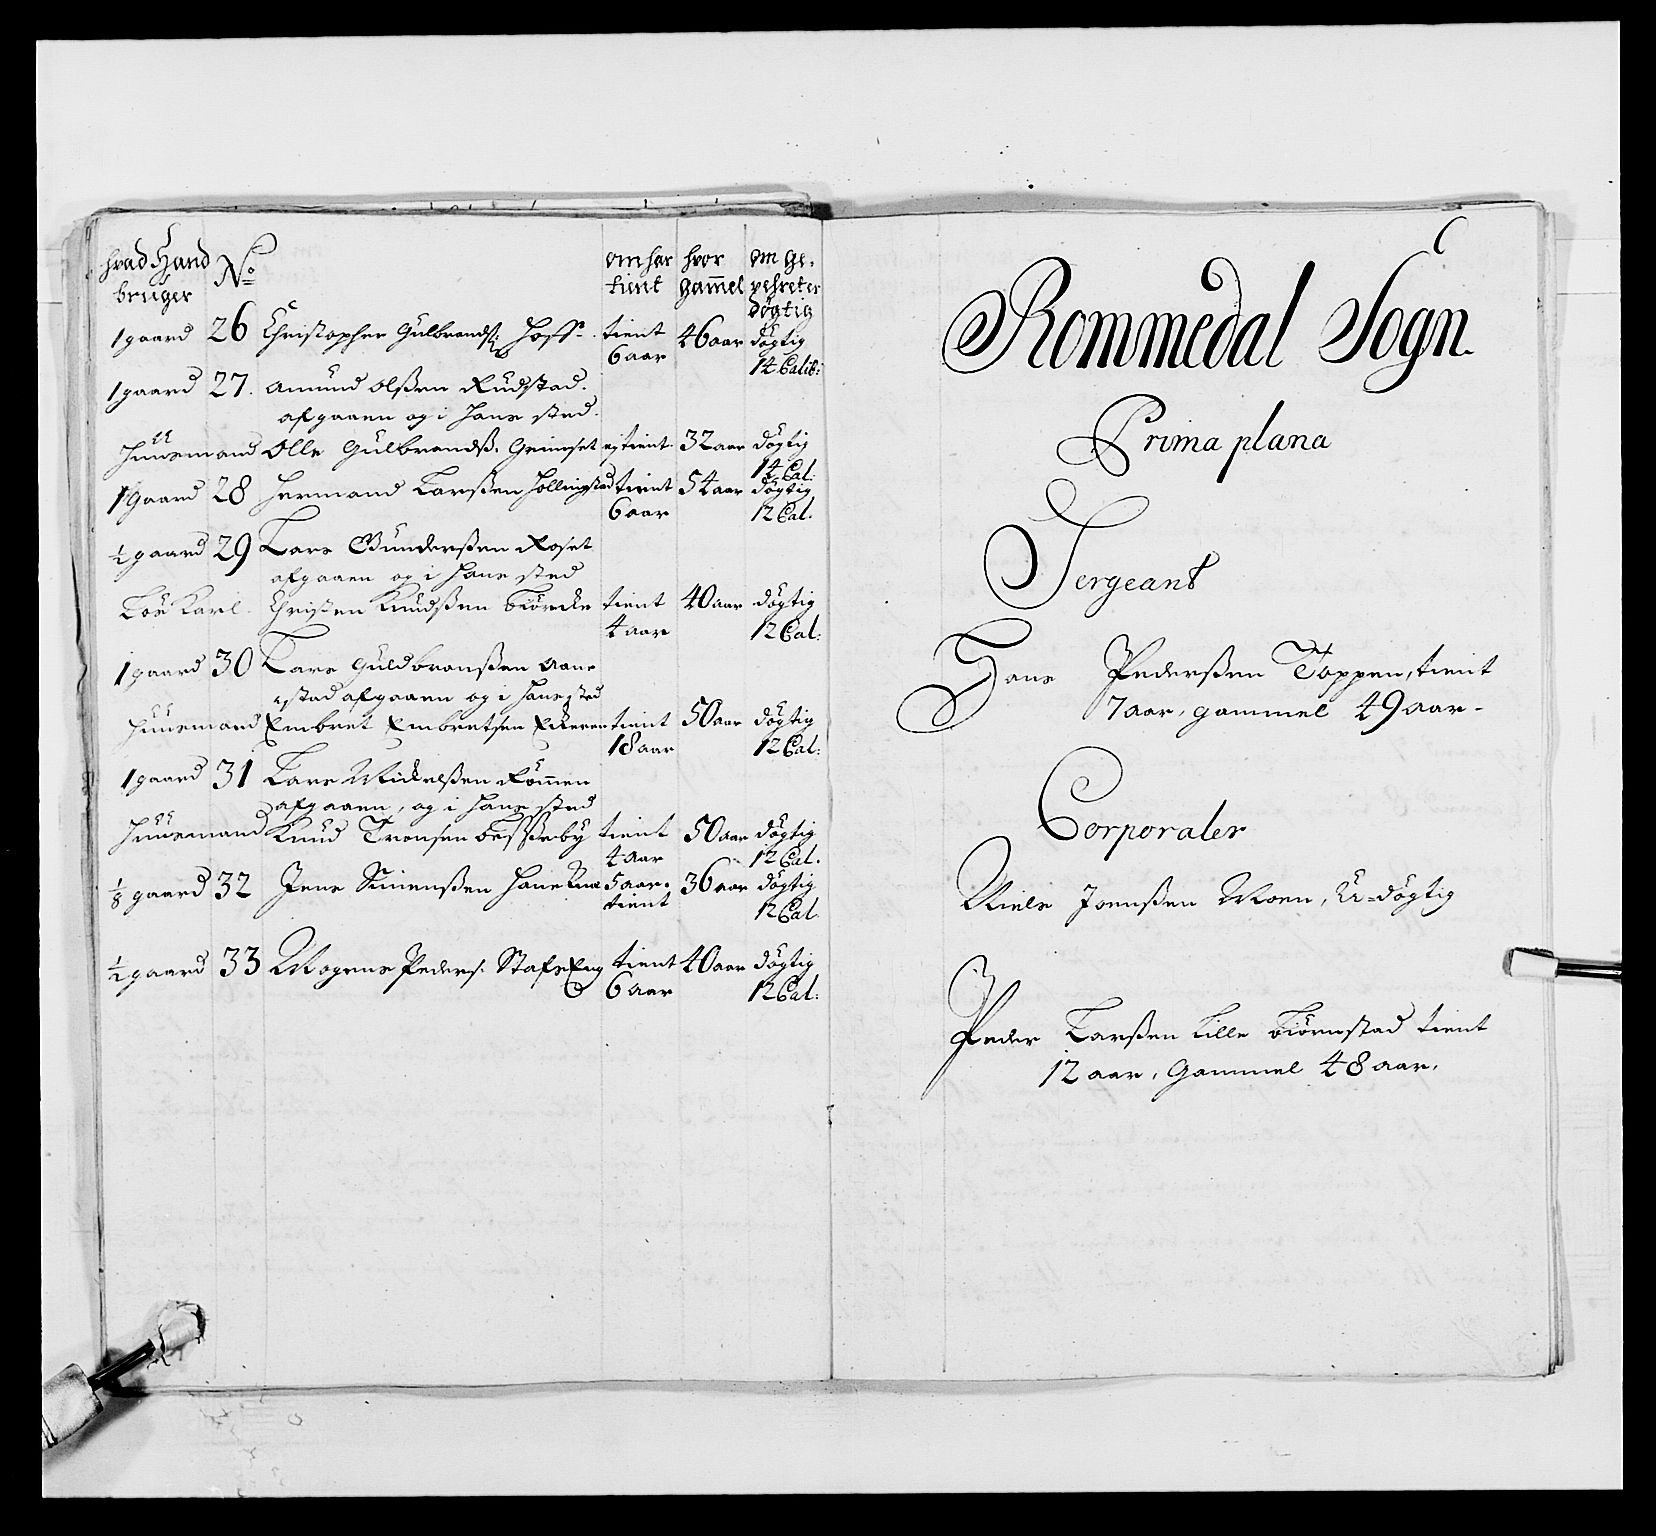 hvad Hand No om har hvor om Ge¬
bruger tient gammel vehret er
døgtig
1 gaard 26 Christopher Gulbrands: Hoff tient 46 aar døgtig
6 aar 14 Calib:
1 gaard 27. Amund Olßen Rudstad
afgaaen og i hans sted
Huusmand Olle Gulbrandß. Grimset ej tient 32 aar døgtig
14 Cal:
1 gaard 28 Hermand Larßen Hollingstad tient 54 aar døgtig
6 aar 12 Cal.
½ gaard 29 Lars Gunderßen Roset
afgaaen og i hans sted
Løs Karl. Christen Knudßen Biørcke tient 40 aar døgtig
4 aar 12 Cal:
1 gaard 30 Lars Guldbranßen Aane
stad afgaaen og i hans sted
Huusmand Embret Embretsen Ekeren tient 50 aar døgtig
18 aar 12 Cal:
1 gaard 31 Lars Mickelßen Rømmen
afgaaen, og i hans sted
Huusmand Knud Tronsen Besseby tient 50 aar døgtig
4 aar 12 Cal.
⅛ gaard 32 Jens Simenßen 5 aar. 36 aar døgtig
tient 12 Cal.
½ gaard 33 Mogens Peders: StafsEng tient 40 aar døgtig
6 aar 12 Cal:
Rommedal Sogn.
Prima plana
Sergeant
Hans Pederßen Toppen, tient
7 aar, gammel 49 aar-
Corporaler
Niels Joenßen Moen, U-døgtig
Peder Larßen Lille Biørnstad tient
12 aar, Gammel 48 aar.